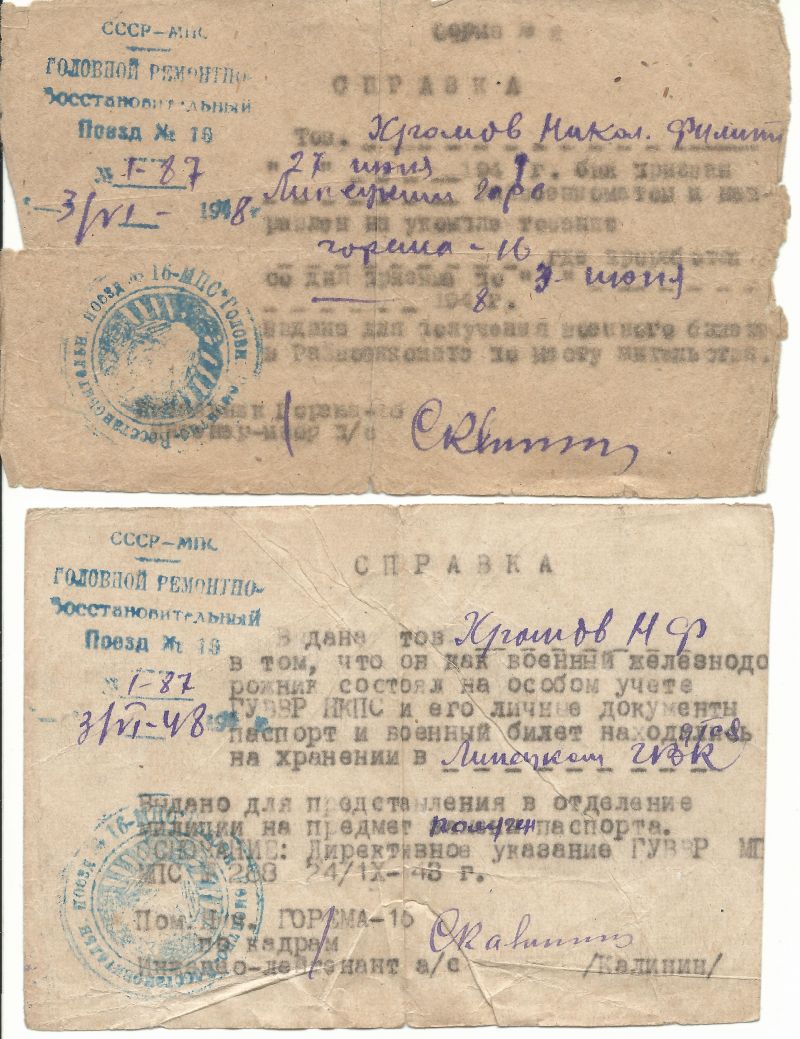 СССР-МПС
ГОЛОВНОЙ РЕМОНТНО-
Восстановительный
Поезд № 16
№ I-87
3/VI- 1948 г
Форма №
СПРАВКА
Тов. Хромов Никол. Филипп
27 июня 194 г. был призван
Липецким Горвоенкоматом и нап-
равлен на укомпле
горема-16 где проработал
со дня призыва по "3" июня
1948 г.
выдано для получения военного билета
в Райвоенкомате по месту жительства.
Горема-16
СССР-МПС
ГОЛОВНОЙ РЕМОНТНО-
Восстановительный
Поезд № 16
№ I-87
3/VI-48
СПРАВКА
Выдана тов Хромов Н Ф
в том, что он как военный железнодо
рожник состоял на особом учете
ГУВВР НКПС и его личные документы
паспорт и военный билет находятся
на хранении в Липецком ГВК
Выдано для представления в отделение
милиции на предмет получен паспорта.
ОСНОВАНИЕ: Директивное указание ГУВВР
МПС № 288 24/IX-
Пом.Нач. ГОРЕМА-16
по кадрам
Инженно-лейтенант а/с /Калинин/